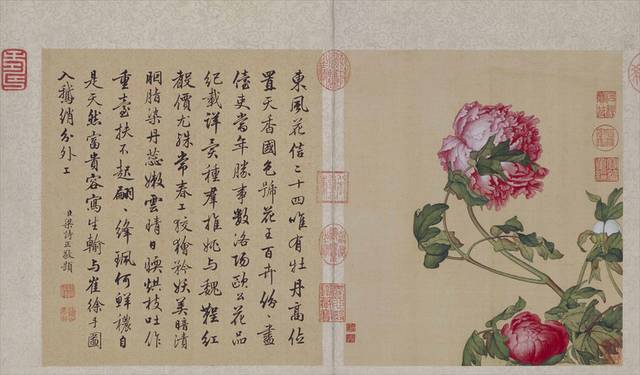 東風花信二十四唯有牡丹高位
置天香國色號花王百卉紛〻盡
儓吏當年勝事數洛陽歐公花品
紀載詳異種羣推姚與魏鞓紅
聲價尤殊常春工狡獪矜妖美暗漬
胭脂染丹蕊嫩雲晴日暎烘枝吐作
重臺扶不起翩〻絳珮何鮮穠自
是天然富貴容寫生輸與崔徐手圖
入鵝綃分外工
臣梁詩正敬題